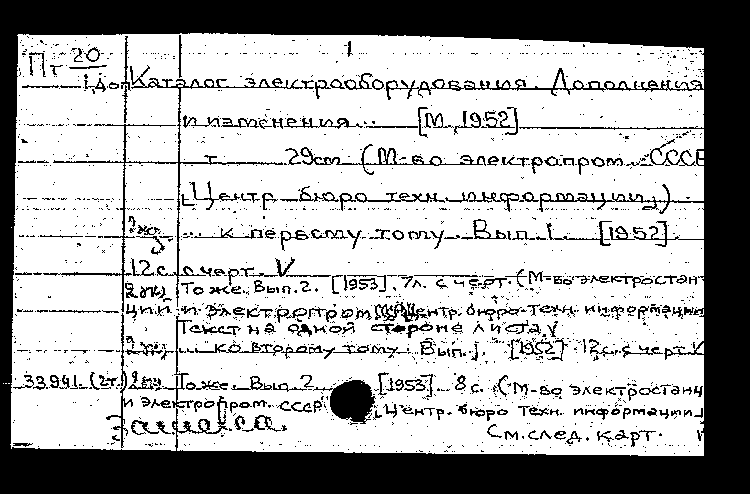 1
Пт 20
1,доп Каталог электрооборудования. Дополнения
и изменения... [М., 1952]
т. 29см (М-во электропром. СССР
[Центр. бюро техн. информации])
2 экз ... к первому тому. Вып. 1. [1952].
12 с. с черт. V
2 экз То же. Вып. 2. [1953]. 7л. с черт. (М-во электростан-
ций и электропром. СССР Центр. бюро техн. информации
Текст на одной стороне листа. V
2 экз ... ко второму тому. Вып. 1. [1952] 12 с. с черт. V
33941. (2т.) 2 экз То же. Вып. 2 [1953]. 8 с. (М-во электростанц
и электропром. СССР [Центр. бюро техн. информации]
См. след. карт.